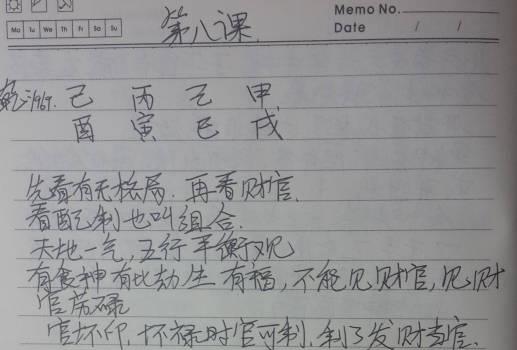 Memo No.
Mo Tu We Th Fr Sa Su
Date / /
第八课
乾:1969. 己 丙 乙 甲
酉 寅 巳 戌
先看有无格局.再看财官.
看配制也叫组合.
天地一气,五行平衡观
有食神有比劫生有福,不能见财官,见财
官劳碌
官坏印,坏禄时官可制,制了发财当官.